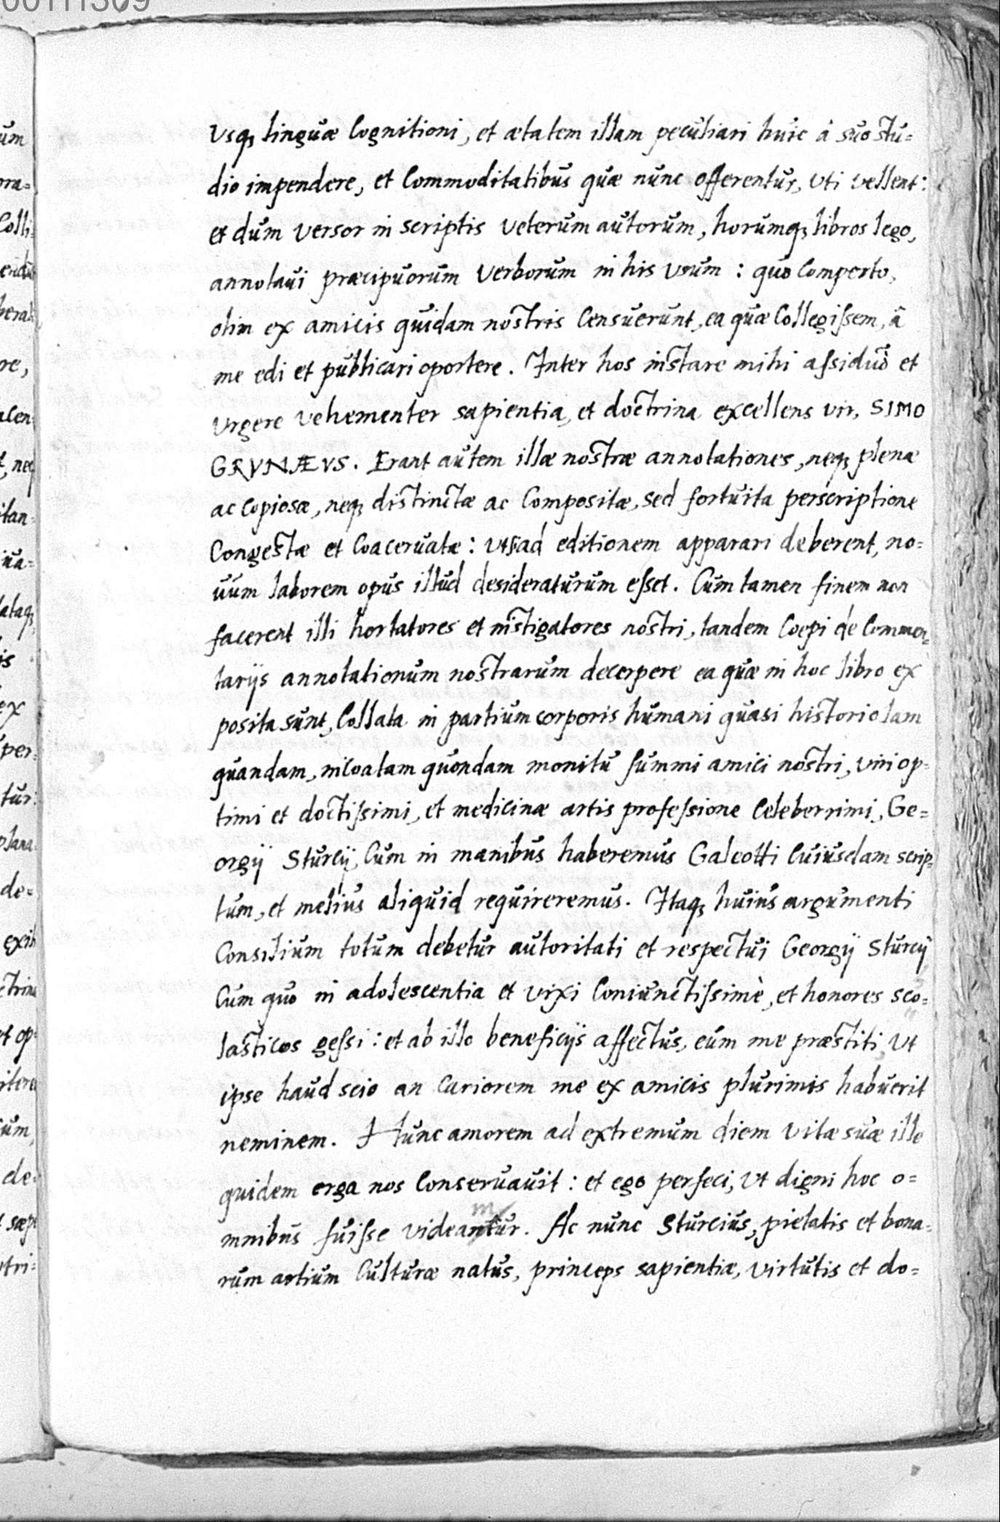 00111309
vsq; linguæ Cognitioni, et ætatem illam peculiari huic à suo stu=
dio impendere, et Commoditatibus quæ nunc offerentur, vti vellent:
et dum versor in scriptis veterum autorum, horumq; libros lego,
annotaui præcipuorum verborum in his vsum: quo Comperto,
olim ex amicis quidam nostris Censuerunt, ea quæ Collegissem, â
me edi et publicari oportere. Inter hos instare mihi assiduò et
vrgere vehementer sapientia, et doctrina excellens vir, SIMO
GRVNÆVS. Erant autem illæ nostræ annotationes, neq; plenæ
ac Copiosæ, neq; distinctæ ac Compositæ, sed fortuita perscriptione
Congestæ et Coaceruatæ: vt si ad editionem apparari deberent, no=
uum laborem opus illud desideraturum esset. Cum tamen finem non
facerent illi hortatores et instigatores nostri, tandem Coepi de Commen=
tarijs annotationum nostrarum decerpere ea quæ in hoc libro ex
posita sunt, Collata in partium corporis humani quasi historiolam
quandam, incoatam quondam monitu summi amici nostri, viri op=
timi et doctissimi, et medicinæ artis professione Celeberrimi, Ge=
orgij Sturcij, Cum in manibus haberemus Galeotti Cuiusdam scrip=
tum, et melius aliquid requireremus. Itaq; huius argumenti
Consilium totum debetur autoritati et respectui Georgij Sturcij
Cum quo in adolescentia et vixi Coniunctissimè, et honores sco=
lasticos gessi: et ab illo beneficijs affectus, eum me præstiti, vt
ipse haud scio an Cariorem me ex amicis plurimis habuerit
neminem. Hunc amorem ad extremum diem vitæ suæ ille
quidem erga nos Conseruauit: et ego perfeci, vt digni hoc o=
mnibus fuisse videantur. Ac nunc Sturcius, pietatis et bona=
rum artium Culturæ natus, princeps sapientiæ, virtutis et do=